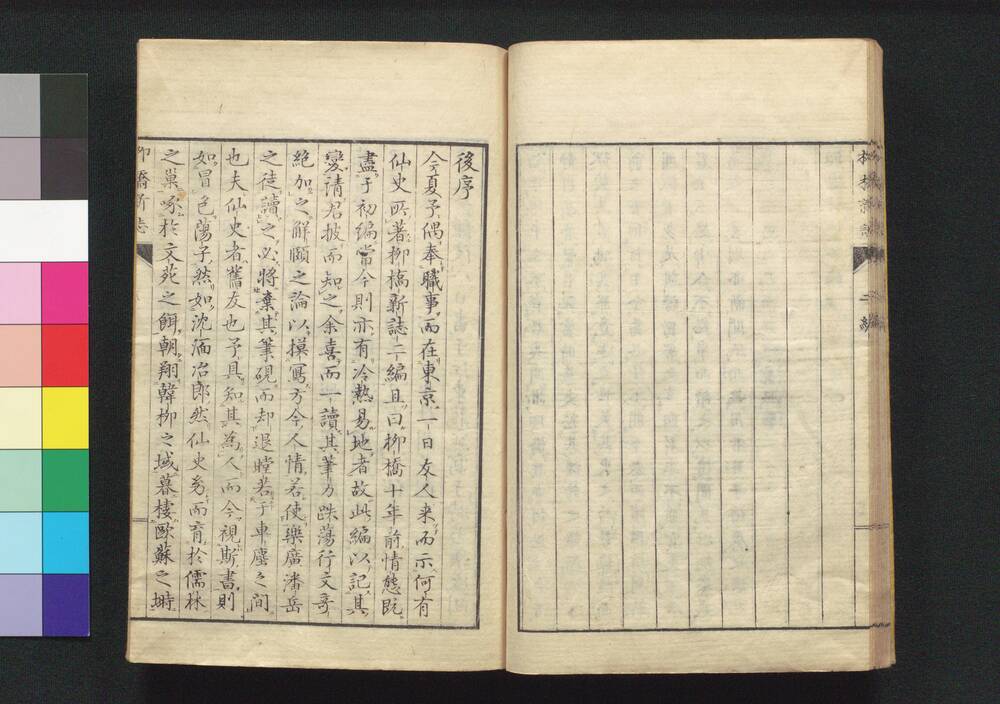 後序
今夏予偶奉職事而在東京一日友人来而示何有
仙史所著柳橋新誌二編且曰柳橋十年前情態既
盡于初編當今則亦有冷熱易地者故此編以記其
變請君披而知之余喜而一讀其筆力跌蕩行文奇
絶加之解頤之論以摸寫方今人情若使樂廣潘岳
之徒讀之必將棄其筆硯而却退瞠若于車塵之間
也夫仙史者舊友也予具知其為人而今視斯書則
如冒色蕩子然如沈湎冶郎然仙史幼而育於儒林
之巣啄於文苑之餌朝翔韓柳之域暮棲歐蘇之塒
柳橋新誌